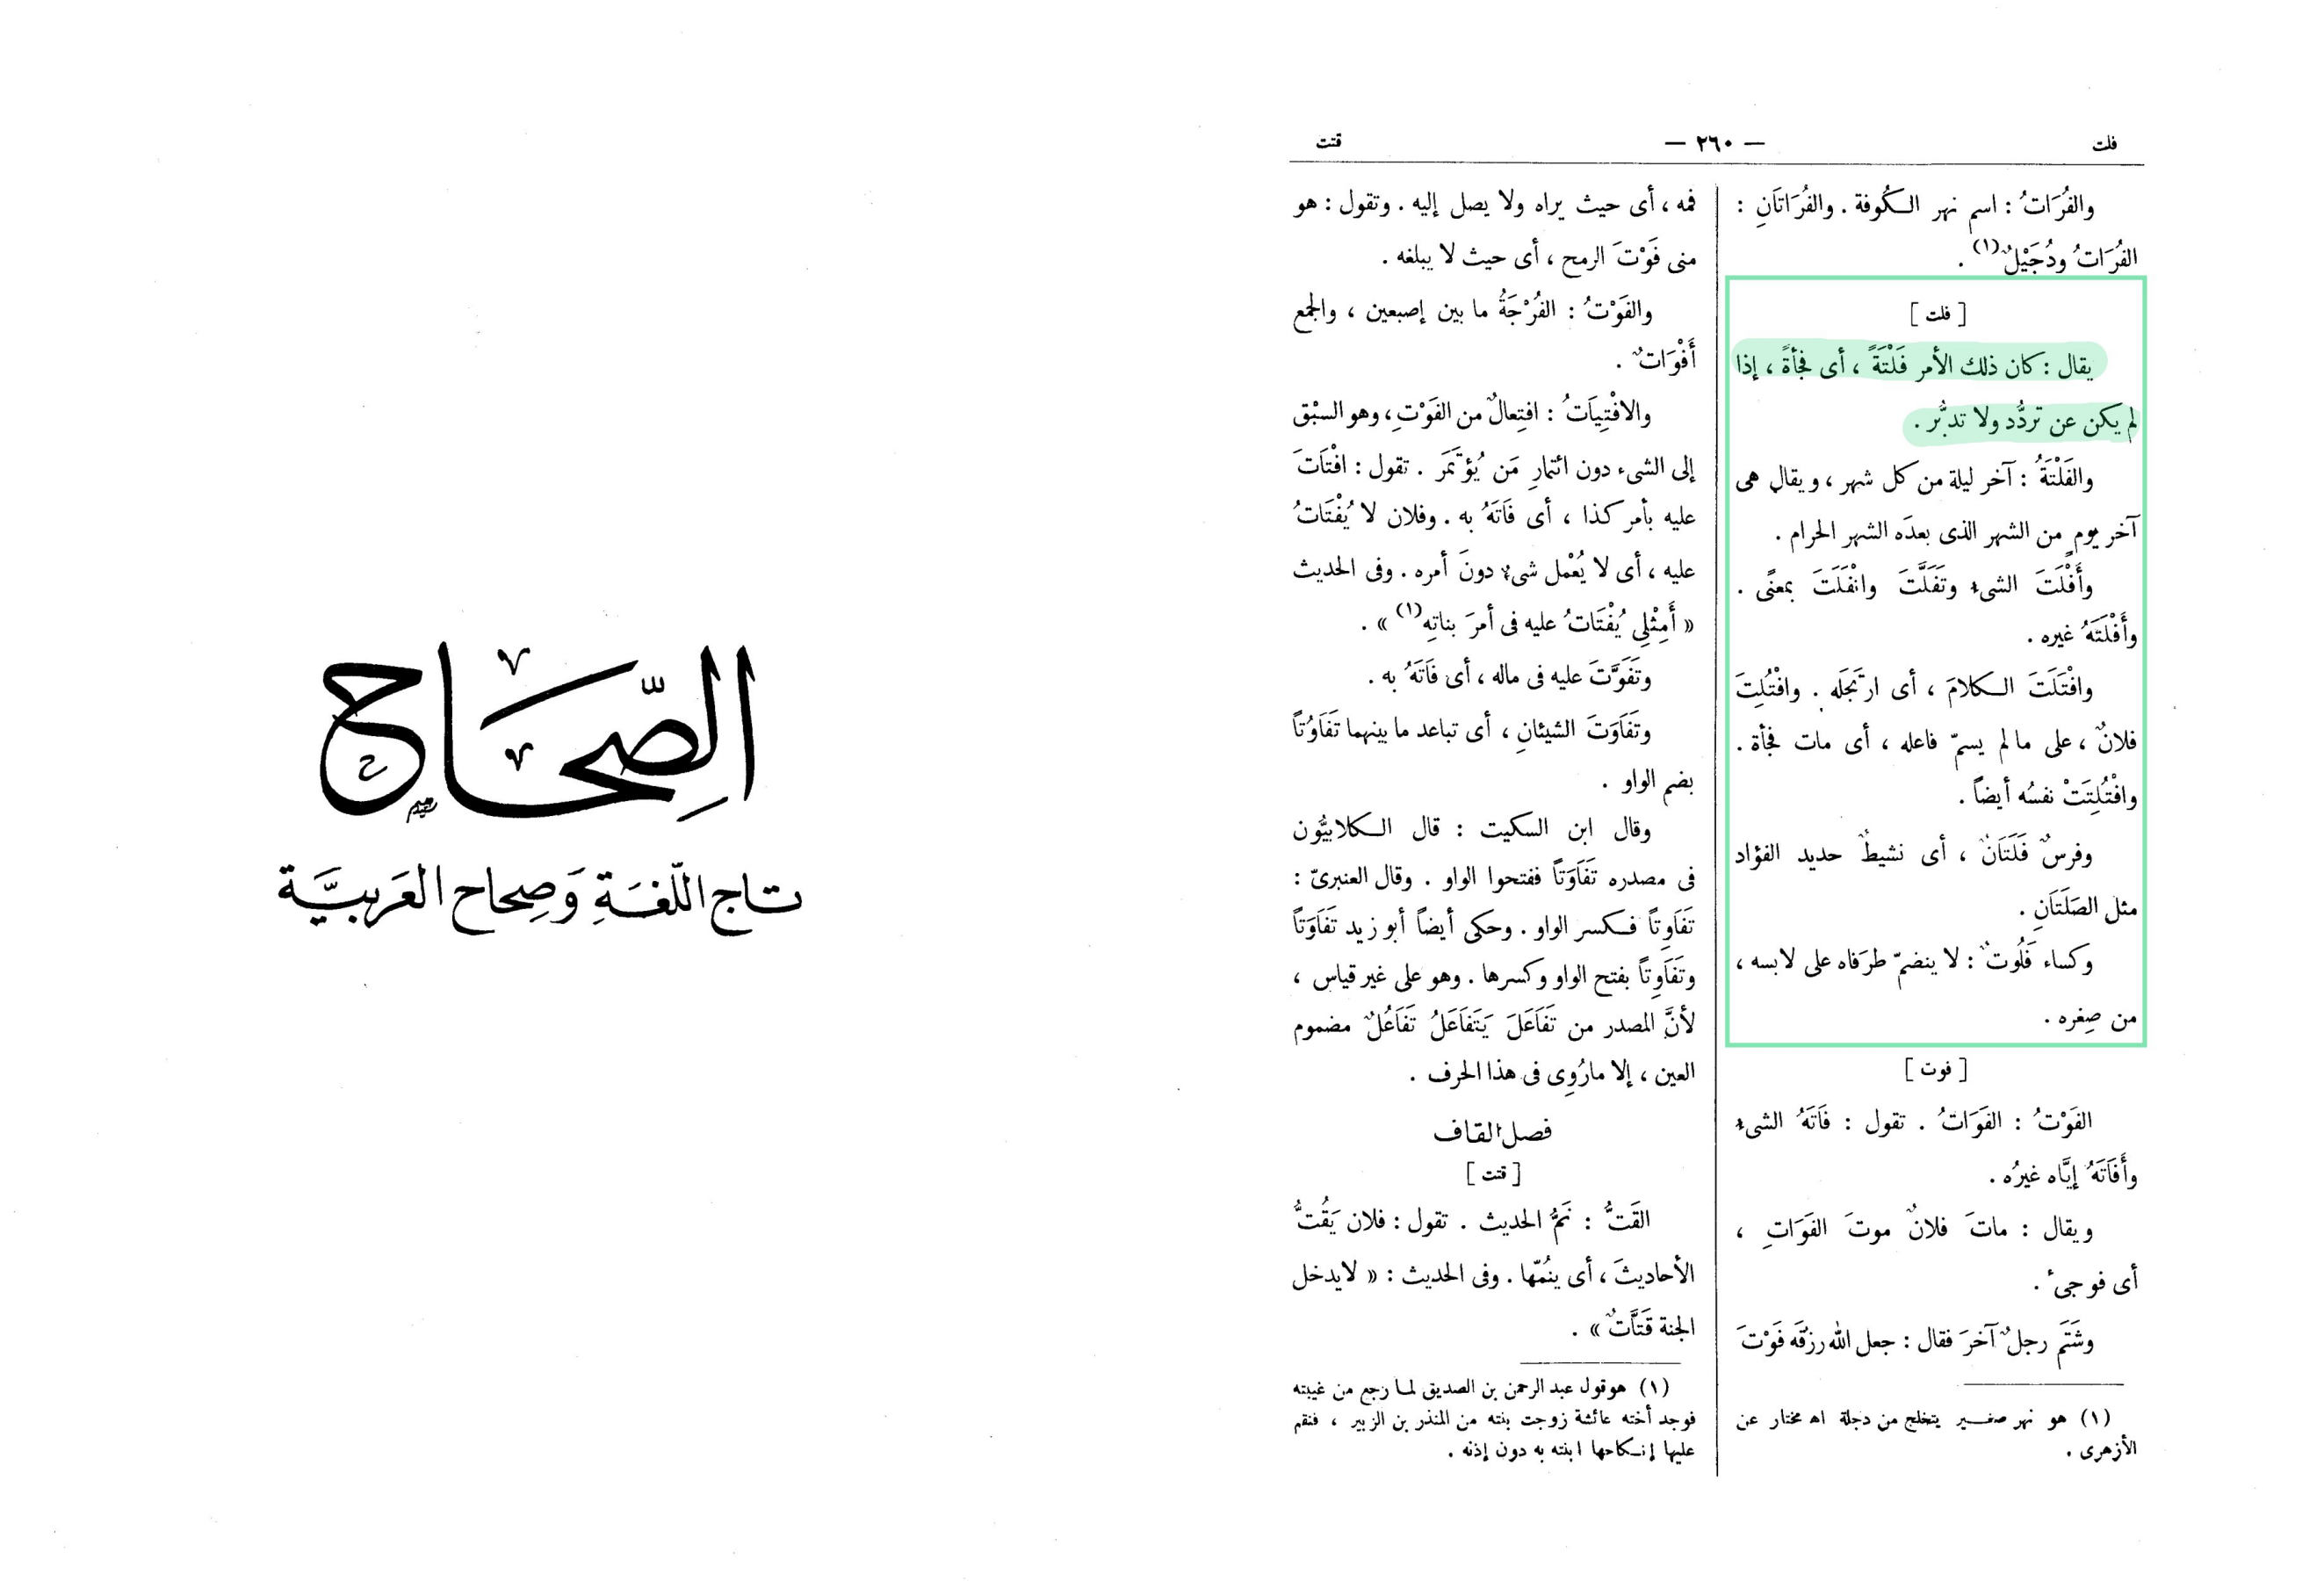 فلت
— ٢٦٠ —
قتت
والفُرَاتُ : اسم نهر الكُوفة . والفُرَاتَانِ :
الفُرَاتُ ودُجَيْلٌ (١) .
[ فلت ]
يقال : كان ذلك الأمر فَلْتَةً ، أى فجأةً ، إذا
لم يكن عن تردُّد ولا تدبُّر .
والفَلْتَةُ : آخر ليلة من كل شهر ، ويقال هى
آخر يوم من الشهر الذى بعدَه الشهر الحرام .
وأَفْلَتَ الشىء وتَفَلَّتَ وانْفَلَتَ بمعنًى .
وأَفْلَتَهُ غيره .
وافْتَلَتَ الكلامَ ، أى ارتَجَله . وافْتُلِتَ
فلانٌ ، على ما لم يسمّ فاعله ، أى مات فجأة .
وافْتُلِتَتْ نفسُه أيضاً .
وفرسٌ فَلَتَانٌ ، أى نشيطٌ حديد الفؤاد
مثل الصَلَتَانِ .
وكساء فَلُوتٌ : لا ينضمّ طرَفاه على لابسه ،
من صِغره .
[ فوت ]
الفَوْتُ : الفَوَاتُ . تقول : فَاتَهُ الشىء
وأَفَاتَهُ إيَّاه غيرُه .
ويقال : ماتَ فلانٌ موتَ الفَوَاتِ ،
أى فوجىء .
وشَتَم رجلٌ آخرَ فقال : جعل الله رزقَه فَوْتَ
(١) هو نهر صغير يتخلج من دجلة اه مختار عن
الأزهرى .
فمه ، أى حيث يراه ولا يصل إليه . وتقول : هو
منى فَوْتَ الرمح ، أى حيث لا يبلغه .
والفَوْتُ : الفُرْجَةُ ما بين إصبعين ، والجمع
أَفْوَاتٌ .
والافْتِيَاتُ : افتِعالٌ من الفَوْتِ ، وهو السبْق
إلى الشىء دون ائتمارِ مَن يُؤتَمَر . تقول : افْتَاتَ
عليه بأمر كذا ، أى فَاتَهُ به . وفلان لا يُفْتَاتُ
عليه ، أى لا يُعْمل شىء دونَ أمره . وفى الحديث
« أَمِثْلِى يُفْتَاتُ عليه فى أمرَ بناتِه (١) » .
وتَفَوَّتَ عليه فى ماله ، أى فَاتَهُ به .
وتَفَاوَتَ الشيئانِ ، أى تباعد ما بينهما تَفَاوُتاً
بضم الواو .
وقال ابن السكيت : قال الكلابيُّون
فى مصدره تَفَاوَتاً ففتحوا الواو . وقال العنبرىّ :
تَفَاوِتاً فكسر الواو . وحكى أيضاً أبو زيد تَفَاوَتاً
وتَفَاوِتاً بفتح الواو وكسرها . وهو على غير قياس ،
لأنَّ المصدر من تَفَاعَلَ يَتَفَاعَلُ تَفَاعُلٌ مضموم
العين ، إلا ما رُوِى فى هذا الحرف .
فصل القاف
[ قتت ]
القَتُّ : نَمُّ الحديث . تقول : فلان يَقُتُّ
الأحاديثَ ، أى ينُمّها . وفى الحديث : « لا يدخل
الجنة قَتَّاتٌ » .
(١) هو قول عبد الرحمن بن الصديق لما رجع من غيبته
فوجد أخته عائشة زوجت بنته من المنذر بن الزبير ، فنقم
عليها إنكاحها ابنته به دون إذنه .
الصِّحَاح
تاج اللّغَةِ وَصِحاح العَرَبيَّة